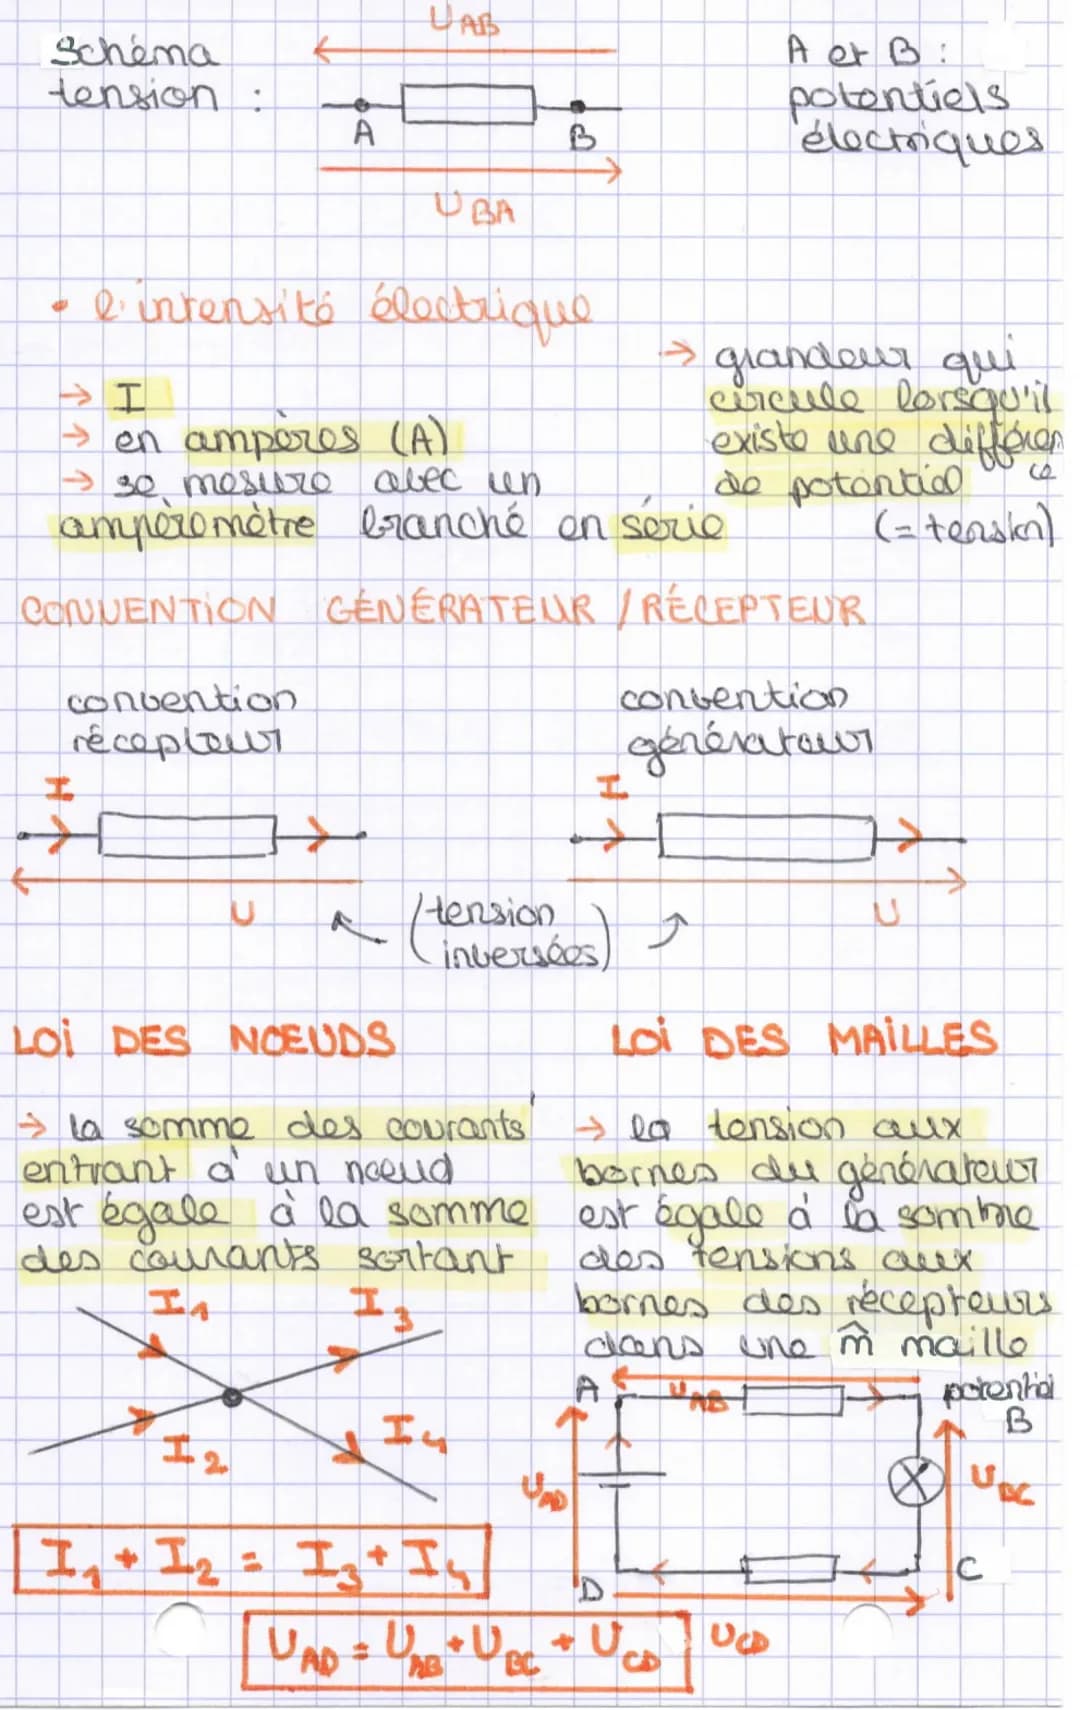 UAB
Schéma
tension :
A et B :
potentiels
électriques
A
B
UBA
• l'intensité électrique
→ I
→ en ampères (A)
→ se mesure avec un
ampèremètre branché en série
→ grandeur qui
circule lorsqu'il
existe une différen
ce
de potentiel
(= tension)
CONVENTION GÉNÉRATEUR / RÉCEPTEUR
convention
récepteur
convention
générateur
I
I
U
(tension
inversées)
U
LOI DES NOEUDS
→ la somme des courants
entrant à un noeud
est égale à la somme
des courants sortant
I1
I3
I2
I4
I1 + I2 = I3 + I4
LOI DES MAILLES
→ la tension aux
bornes du générateur
est égale à la somme
des tensions aux
bornes des récepteurs
dans une m̂ maille
A
UAB
potentiel
B
UAD
UBC
D
C
UCD
UAD = UAB + UBC + UCD